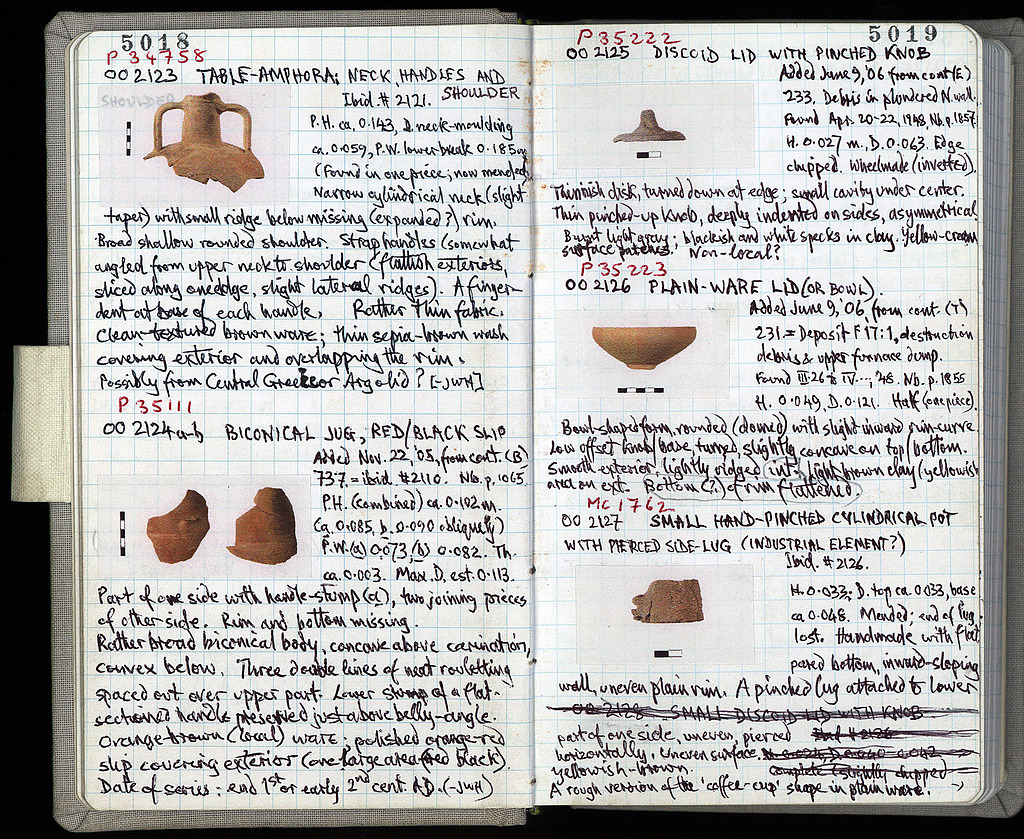 5018
P 34758
OO 2123 TABLE-AMPHORA: NECK, HANDLES AND
SHOULDER
Ibid. # 2121.
P.H. ca. 0.143, D. neck-moulding
ca. 0.059, P.W. lower break 0.185
(Found in one piece; now mended).
Narrow cylindrical neck (slight
taper) with small ridge below missing (expanded?) rim.
Broad shallow rounded shoulder. Strap handles (somewhat
angled from upper neck to shoulder (flattish exteriors,
sliced along one edge, slight lateral ridges). A finger-
dent at base of each handle. Rather thin fabric.
Clean-textured brown ware; thin sepia-brown wash
covering exterior and overlapping the rim.
Possibly from Central Greece or Argolid? [-JWH]
P 35111
OO 2124 a-b BICONICAL JUG, RED/BLACK SLIP
Added Nov. 22, '05, from cont. (B)
737 = ibid. # 2110. Nb. p. 1065.
P.H. (combined) ca. 0.102 m.
(a. 0.085, b. 0.090 obliquely)
P.W. (a) 0.073, (b) 0.082. Th.
ca. 0.003. Max. D. est. 0.113.
Part of one side with handle-stump (a), two joining pieces
of other side. Rim and bottom missing.
Rather broad biconical body, concave above carination,
convex below. Three double lines of neat rouletting
spaced out over upper part. Lower stump of a flat-
sectioned handle preserved just above belly-angle.
Orange-brown (local) ware; polished orange-red
slip covering exterior (one large area fired black).
Date of series: end 1st or early 2nd cent. A.D. (-JWH)
5019
P 35222
OO 2125 DISCOID LID WITH PINCHED KNOB
Added June 9, '06 from cont. (E)
233, Debris in plundered N. wall.
Found Apr. 20-22, 1948, Nb. p. 1857.
H. 0.027 m., D. 0.063. Edge
chipped. Wheelmade (inverted).
Thinnish disk, turned down at edge; small cavity under center.
Thin pinched-up knob, deeply indented on sides, asymmetrical
Burnt light gray; blackish and white specks in clay. Yellow-cream
surface patches. Non-local?
P 35223
OO 2126 PLAIN-WARE LID (OR BOWL).
Added June 9, '06, from cont. (T)
231 = Deposit F 17:1, destruction
debris & upper furnace dump.
Found III·26 & IV..., '48. Nb. p. 1855
H. 0.049, D. 0.121. Half (one piece).
Bowl-shaped form, rounded (domed) with slight inward rim-curve.
Low offset knob/base, turned, slightly concave on top/bottom.
Smooth exterior, lightly ridged int. Light brown clay (yellowish
area on ext. Bottom (?) of rim flattened.
MC 1762
OO 2127 SMALL HAND-PINCHED CYLINDRICAL POT
WITH PIERCED SIDE-LUG (INDUSTRIAL ELEMENT?)
Ibid. # 2126.
H. 0.033; D. top ca. 0.033, base
ca. 0.048. Mended; end of lug
lost. Handmade with flat
pared bottom, inward-sloping
wall, uneven plain rim. A pinched lug attached to lower
OO 2128 SMALL DISCOID LID WITH KNOB
part of one side, uneven, pierced Ibid # 2126
horizontally. Uneven surface, H. 0.024, D. 0.040-0.042
yellowish-brown. Complete (slightly chipped)
A rough version of the 'coffee-cup' shape in plain ware. →